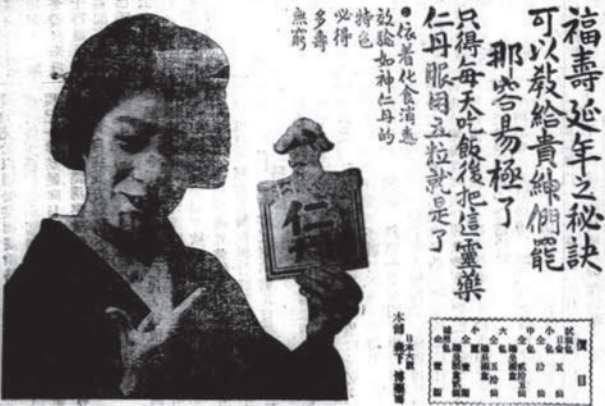 福壽延年之秘訣
可以敎給貴紳們罷
那容易極了
只得每天吃飯後把這靈藥
仁丹服用五粒就是了
●依着化食消毒
效驗如神仁丹的
特色
必得
多壽
無窮
仁丹
價目
日本大阪
本舖 森下博